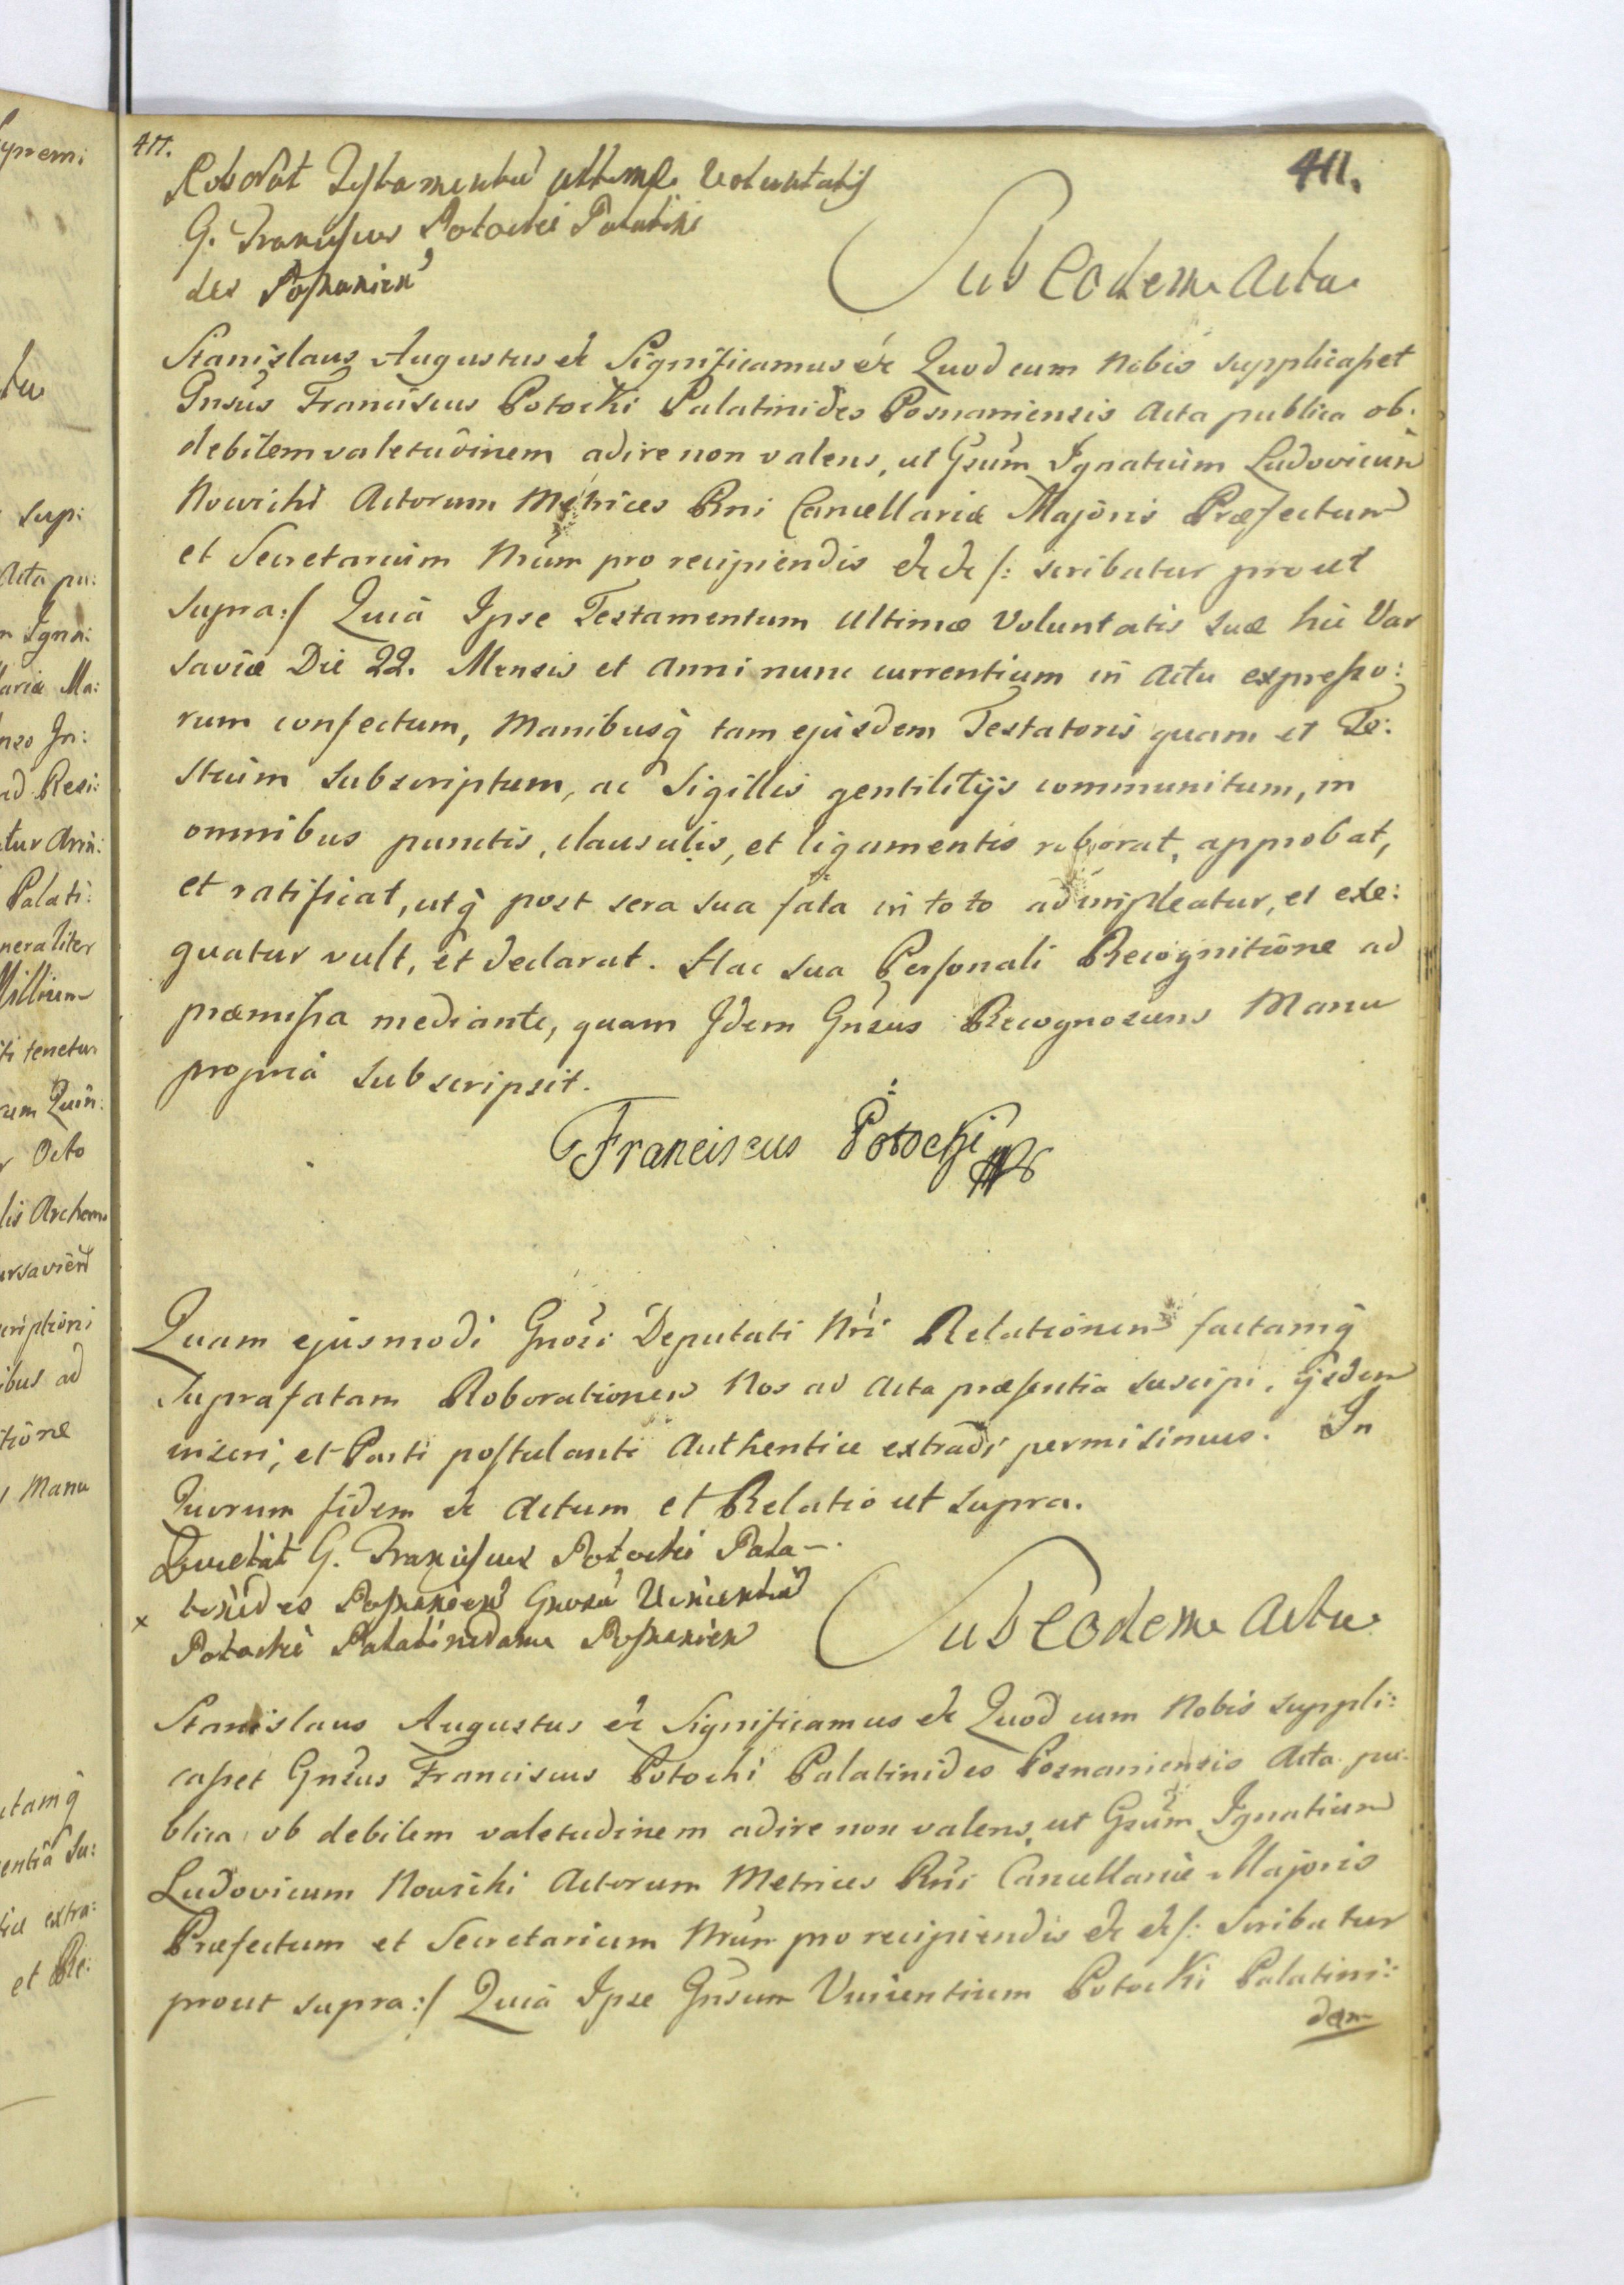 411.
411.
Roborat Testamentu ultimæ Voluntatis
G. Franciscus Potocki Palatini
des Posnanien
Sub Eodem Actu
Stanislaus Augustus &c Significamus &c Quod cum Nobis supplicasset
Gnsus Franciscus Potocki Palatinides Posnaniensis Acta publica ob
debilem valetudinem adire non valens, ut Gsum Ignatium Ludovicum
Nowicki Actorum Metrices Rni Cancellariæ Majoris Præfectum
et Secretarium Nrum pro recipiendis &c &c /: scribatur prout
supra :/ Quia Ipse Testamentum Ultimæ Voluntatis suæ hic Var
saviæ Die 22. Mensis et Anni nunc currentium in Actu expresso:
rum confectum, Manibusq tam ejusdem Testatoris quam et Te:
stium subscriptum, ac Sigillis gentilitijs communitum, in
omnibus punctis, clausulis, et ligamentis roborat, approbat,
et ratificat, utq post sera sua fata in toto adimpleatur, et exe:
quatur vult, et declarat. Hac sua Personali Recognitione ad
præmissa mediante, quam Idem Gnsus Recognoscens Manu
propria subscripsit.
Franciscus Potocki
Quam ejusmodi Gnosi Deputati Nri Relationem factamq
suprafatam Roborationem Nos ad Acta præsentia suscipi, ijsdem
inseri, et Parti postulanti Authentice extradi permisimus. In
Quorum fidem &c Actum et Relatio ut supra.
G. Franciscus Potocki Pala-
tinides Posnanien Gnosu Vincentiu
x
Potocki Palatinidam Posnanien
Sub Eodem Actu
Stanislaus Augustus &c Significamus &c Quod cum Nobis suppli:
casset Gnsus Franciscus Potocki Palatinides Posnaniensis Acta pu-
blica ob debilem valetudinem adire non valens, ut Gsum Ignatium
Ludovicum Nowicki Actorum Metrices Rni Cancellariæ Majoris
Præfectum et Secretarium Nrum pro recipiendis &c &c /: Scribatur
prout supra :/ Quia Ipse Gnsum Vincentium Potocki Palatini:
dam